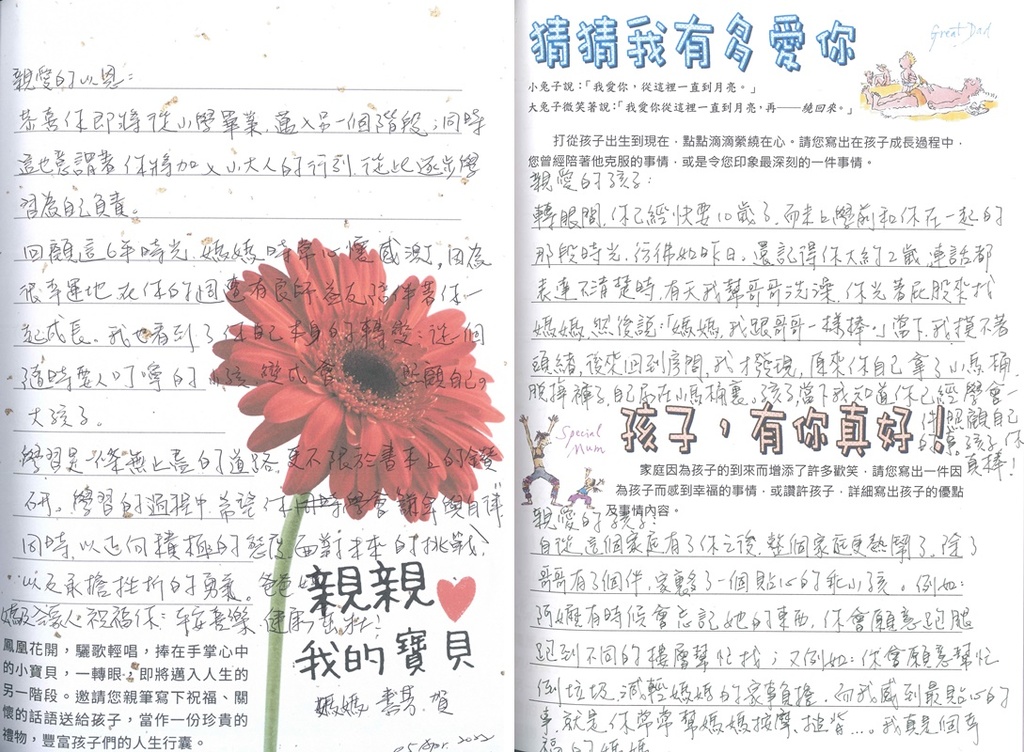 親愛的以恩：
恭喜你即將從小學畢業，邁入另一個階段；同時
這也意謂著你將加入小大人的行列，從此逐步學
習為自己負責。
回顧這6年時光，媽媽時常心懷感激，因為
很幸運地在你的週遭有良師益友陪伴著你一
起成長。我也看到了你自己本身的轉變：從一個
隨時要人叮嚀的小孩變成會照顧自己的
大孩子。
學習是一條無止盡的道路，更不限於書本上的鑽
研。學習的過程中，希望你學會謙卑與自律
同時，以正向積極的態度面對未來的挑戰、
以及承擔挫折的勇氣。爸爸
媽及家人祝福你：平安喜樂、健康茁壯！
親親
我的寶貝
鳳凰花開，驪歌輕唱，捧在手掌心中
的小寶貝，一轉眼，即將邁入人生的
另一階段。邀請您親筆寫下祝福、關
懷的話語送給孩子，當作一份珍貴的
禮物，豐富孩子們的人生行囊。
媽媽 賀
25 Apr. 2022
猜猜我有多愛你
Great Dad
小兔子說：「我愛你，從這裡一直到月亮。」
大兔子微笑著說：「我愛你從這裡一直到月亮，再──繞回來。」
打從孩子出生到現在，點點滴滴縈繞在心。請您寫出在孩子成長過程中，
您曾經陪著他克服的事情，或是令您印象最深刻的一件事情。
親愛的孩子：
轉眼間，你已經快要10歲了，而未上學前和你在一起的
那段時光，彷彿如昨日。還記得你大約2歲，連話都
表達不清楚時，有天我幫哥哥洗澡，你光著屁股來找
媽媽，然後說：「媽媽，我跟哥哥一樣棒。」當下，我摸不著
頭緒，後來回到房間，我才發現，原來你自己拿了小馬桶，
脫掉褲子，自己尿在小馬桶裏。孩子，當下我知道你已經學會一
件照顧自己
的事。孩子，你
真棒！
孩子，有你真好！
Special
Mum
家庭因為孩子的到來而增添了許多歡笑，請您寫出一件因
為孩子而感到幸福的事情，或讚許孩子，詳細寫出孩子的優點
及事情內容。
親愛的孩子：
自從這個家庭有了你之後，整個家庭更熱鬧了，除了
哥哥有了個伴，家裏多了一個貼心的乖小孩。例如：
阿嬤有時候會忘記她的東西，你會願意跑腿
跑到不同的樓層幫忙找；又例如：你會願意幫忙
倒垃圾，減輕媽媽的家事負擔。而我感到最貼心的
事，就是你常常幫媽媽按摩、搥背…。我真是個幸
福的媽媽